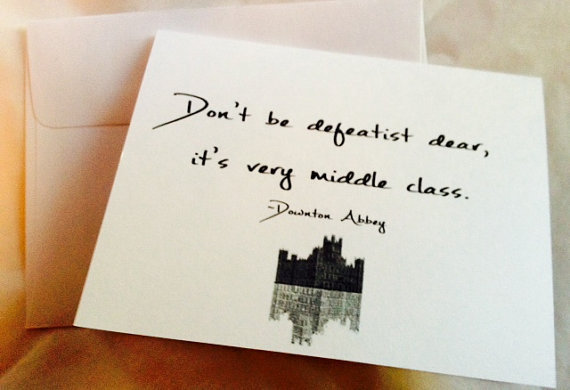 Don't be defeatist dear,
it's very middle class.
-Downton Abbey